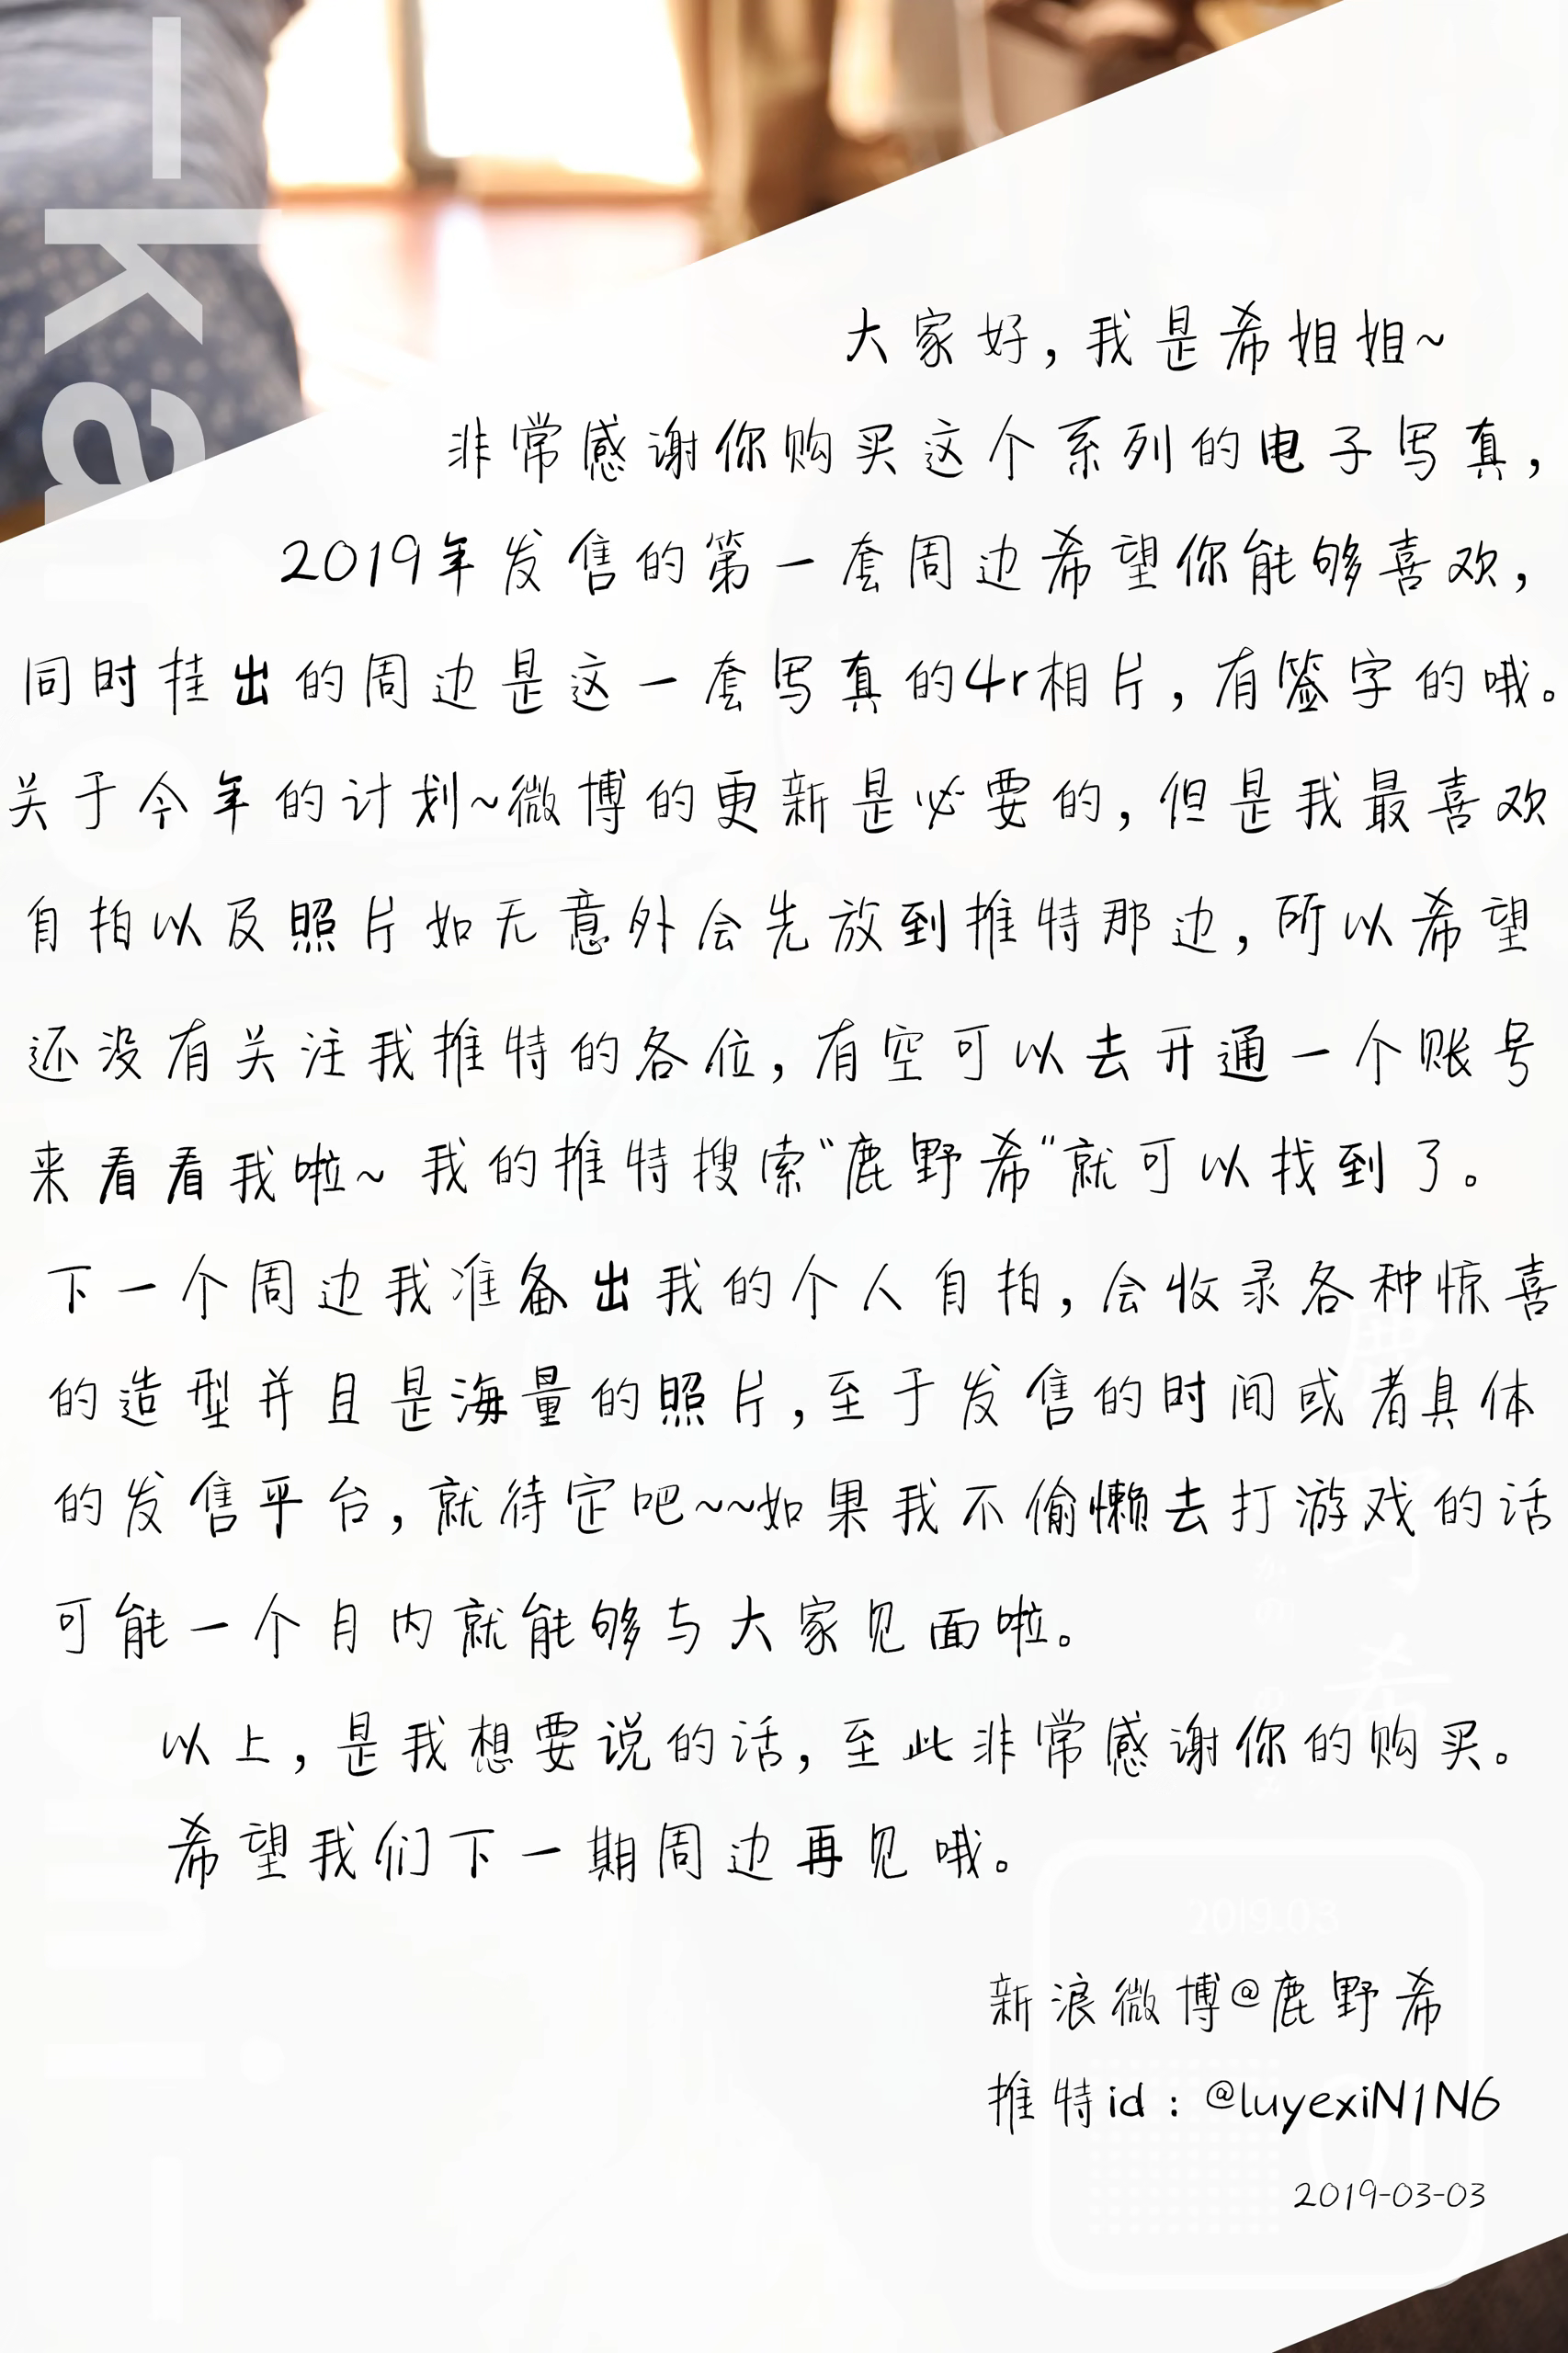 大家好,我是希姐姐~
非常感谢你购买这个系列的电子写真,
2019年发售的第一套周边希望你能够喜欢,
同时挂出的周边是这一套写真的4r相片,有签字的哦。
关于今年的计划~微博的更新是必要的,但是我最喜欢
自拍以及照片如无意外会先放到推特那边,所以希望
还没有关注我推特的各位,有空可以去开通一个账号
来看看我啦~ 我的推特搜索“鹿野希”就可以找到了。
下一个周边我准备出我的个人自拍,会收录各种惊喜
的造型并且是海量的照片,至于发售的时间或者具体
的发售平台,就待定吧~~如果我不偷懒去打游戏的话
可能一个月内就能够与大家见面啦。
以上,是我想要说的话,至此非常感谢你的购买。
希望我们下一期周边再见哦。
新浪微博@鹿野希
推特id：@luyexiN1N6
2019-03-03
鹿野希
2019.03
01